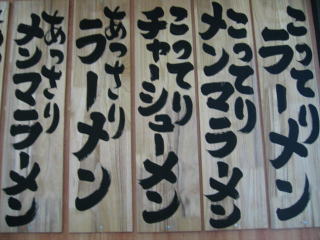 こってり
ラーメン
こってり
メンマラーメン
こってり
チャーシューメン
あっさり
ラーメン
あっさり
メンマラーメン